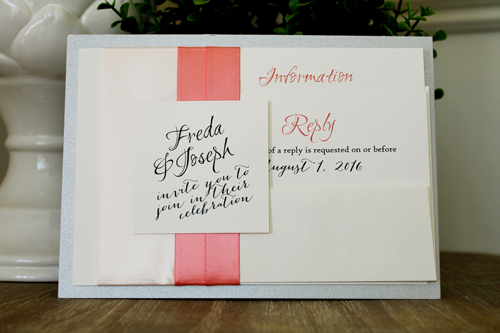 Freda
& Joseph
invite you to
join in their
celebration
Information
Reply
of a reply is requested on or before
August 1, 2016